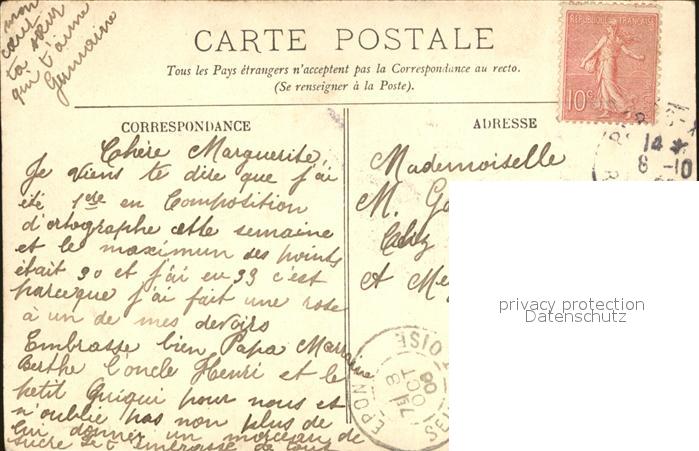 mon
cœur
ta sœur
qui t'aime
Germaine
CARTE POSTALE
Tous les Pays étrangers n'acceptent pas la Correspondance au recto.
(Se renseigner à la Poste).
REPUBLIQUE FRANÇAISE
10c
CORRESPONDANCE
Chère Marguerite,
Je viens te dire que j'ai
été 1ère en Composition
d'ortographe cette semaine
et le maximun des points
était 30 et j'ai eu 33 c'est
parceque j'ai fait une rose
à un de mes devoirs
Embrasse bien Papa Marraine
Berthe l'oncle Henri et le
petit Guigui pour nous et
n'oublie pas non plus de
lui donner un morceau de
sucre embrasse de tout
ADRESSE
Mademoiselle
M. Ga
Chez
A Me
14 *
8 -10
EPON
OISE
8
OCT
06
privacy protection
Datenschutz